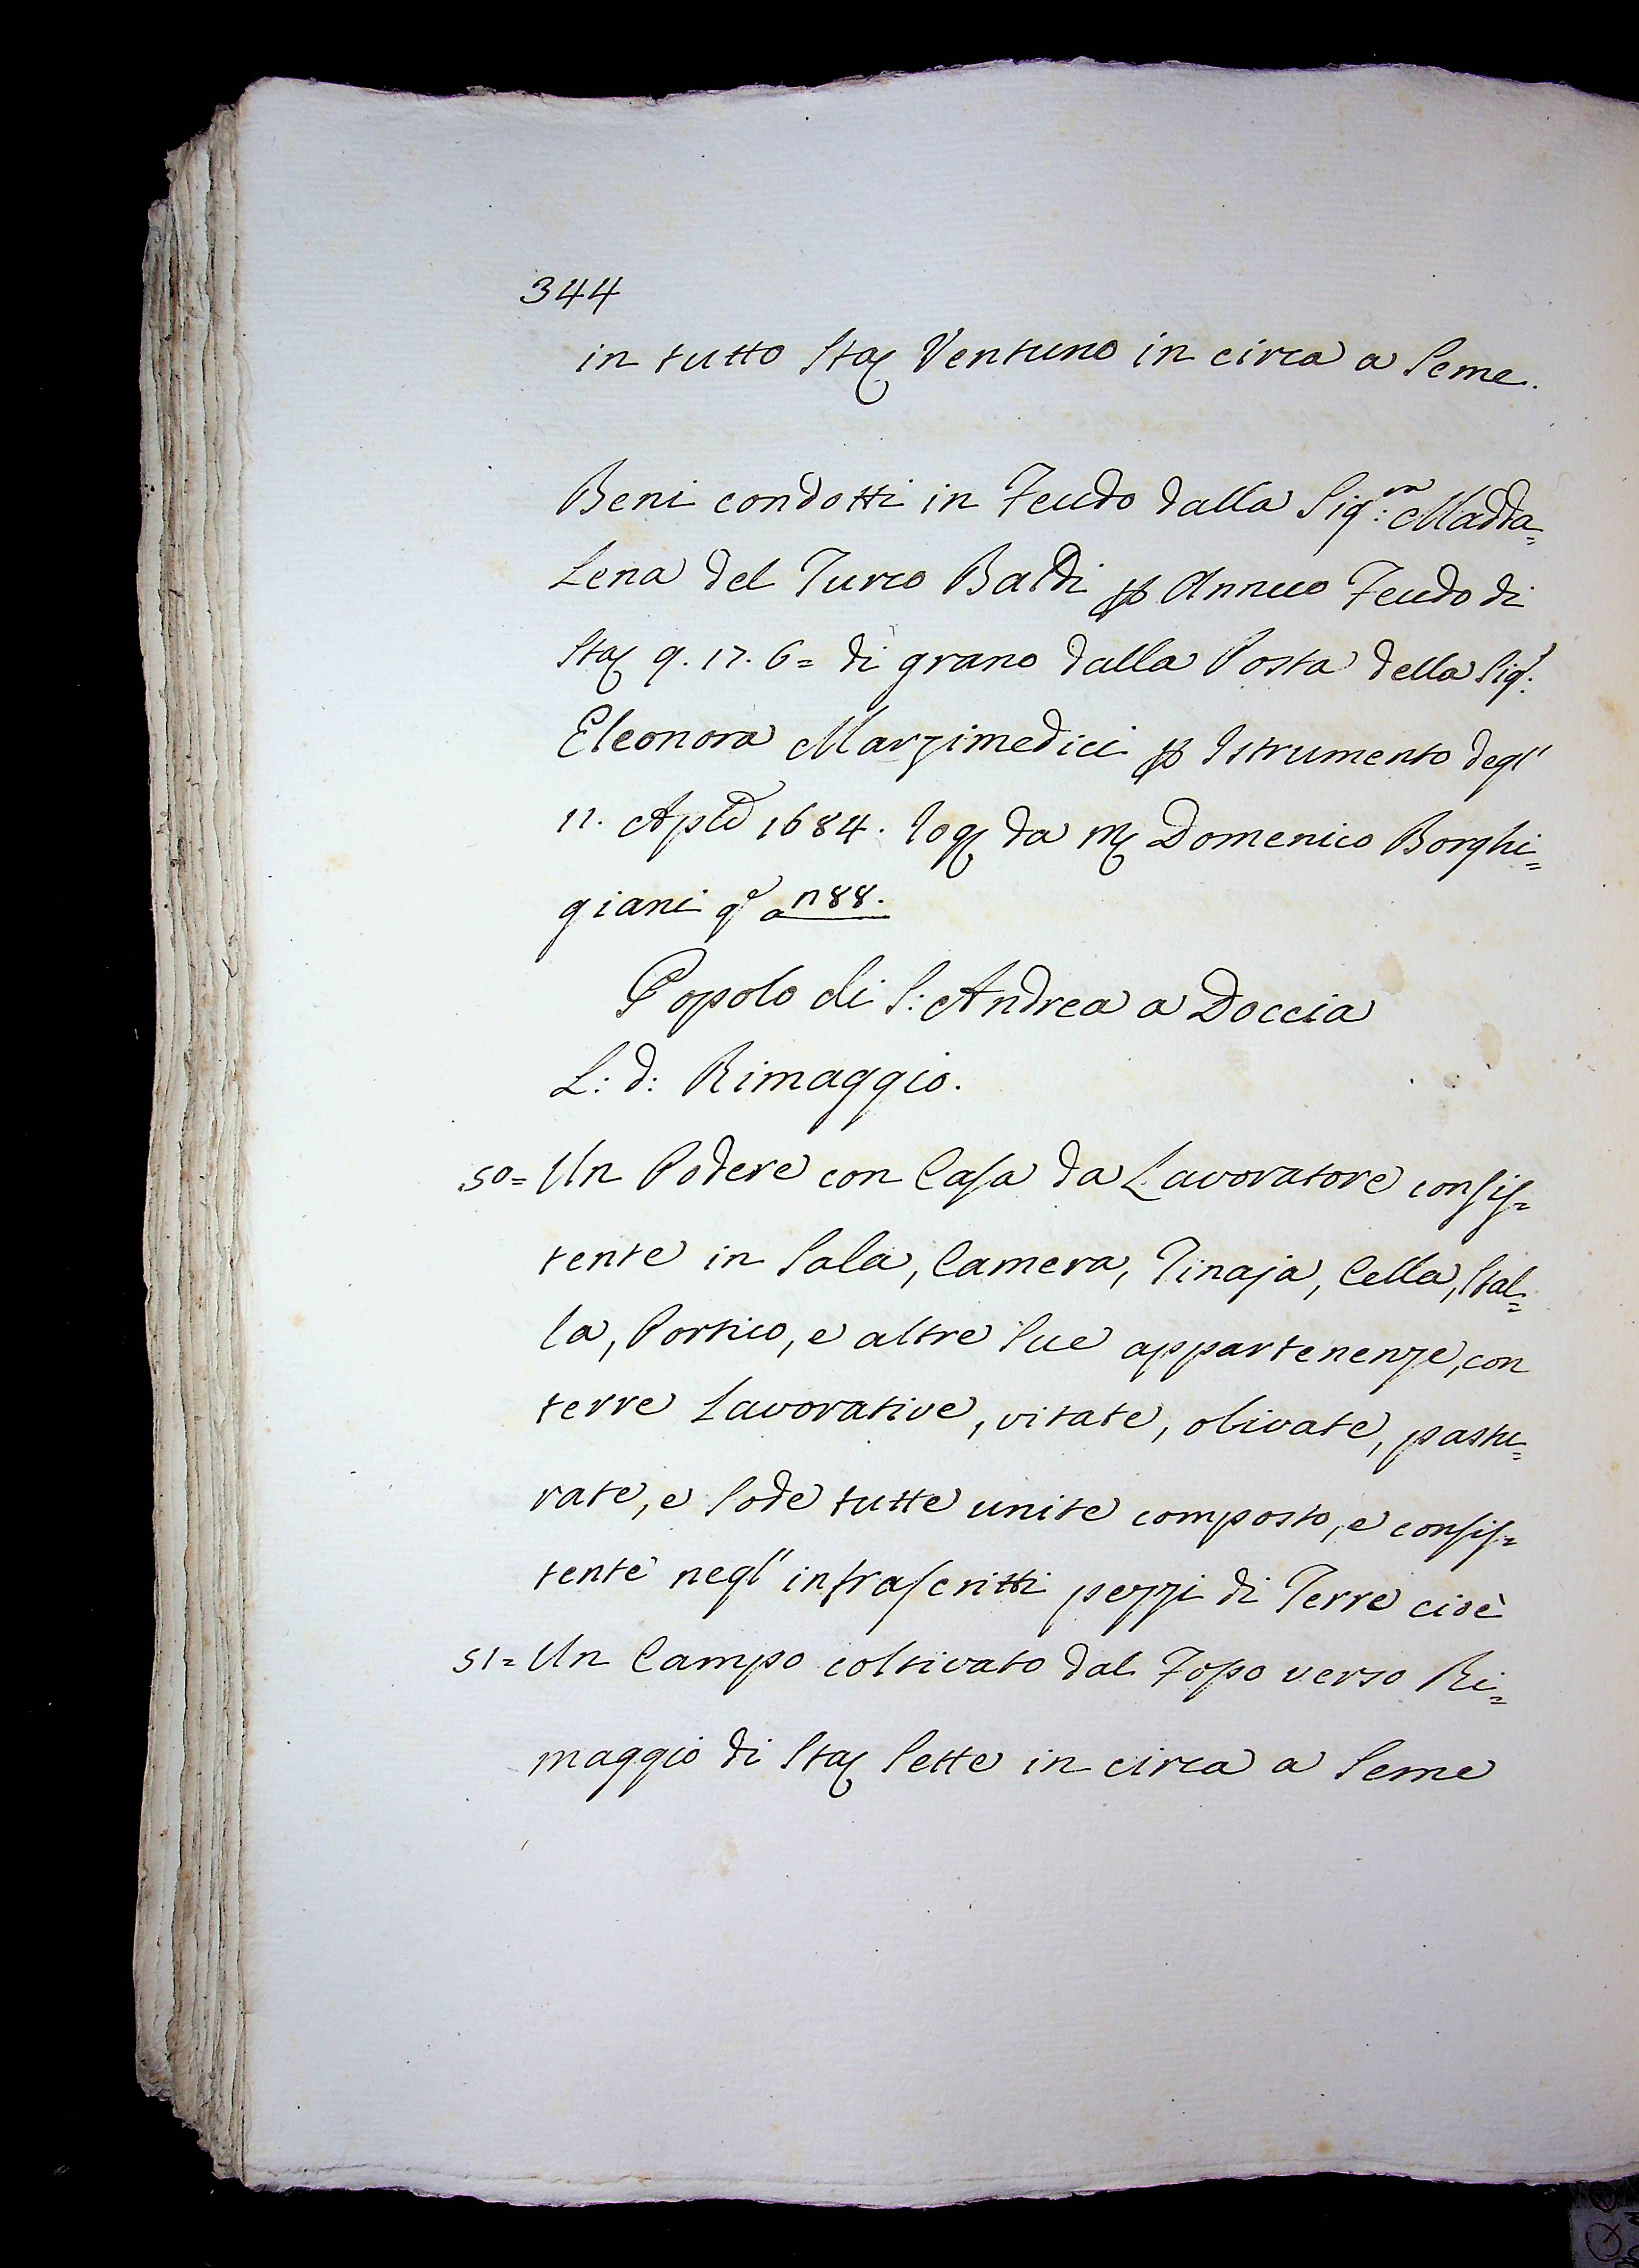 344
in tutto Staj Ventuno in circa a Seme.
Beni condotti in Feudo dalla Sig:ra Madda=
Lena del Turco Baldi p Annuo Feudo di
Staj 9. 17. 6= di grano dalla Posta della Sig:ra
Eleonora Marzimedici p Istrumento degl'
11. Aple 1684. rog da M Domenico Borghi=
giani qo a n 88.
Popolo di S: Andrea a Doccia
L: d: Rimaggio.
50= Un Podere con Casa da Lavoratore consis=
tente in Sala, Camera, Tinaja, Cella, Stal=
la, Portico, e altre Sue appartenenze, con
terre Lavorative, vitate, olivate, pastu=
rate, e Sode tutte unite composto, e consis=
tente negl'infrascritti pezzi di Terre cioè
51= Un Campo coltivato dal Fosso verso Ri=
maggio di Staj Sette in circa a Seme